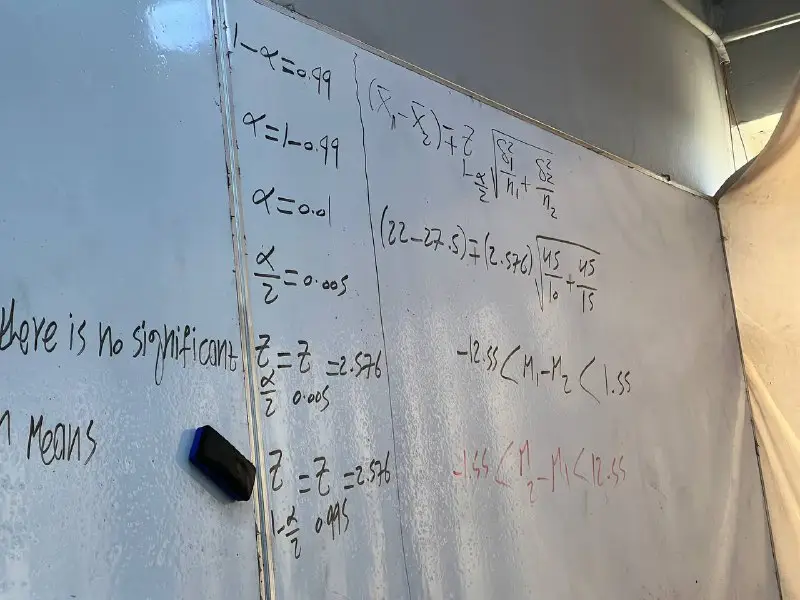 there is no significant
Means
1-α=0.99
α=1-0.99
α=0.01
α/2=0.005
Z_{α/2}=Z_{0.005}=2.576
Z_{1-α/2}=Z_{0.995}=2.576
(X̄₁-X̄₂)∓Z_{1-α/2}√(δ₁²/n₁+δ₂²/n₂)
(22-27.5)∓(2.576)√(45/10+45/15)
-12.55<M₁-M₂<1.55
-1.55<M₂-M₁<12.55